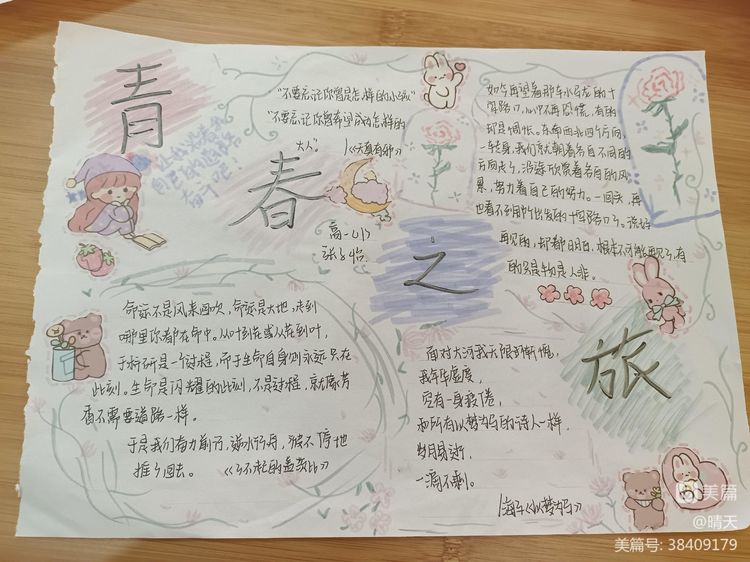 青
春
之
旅
"不要忘记你曾是怎样的小孩"
"不要忘记你曾希望成为怎样的
大人"
《天真有邪》
让我
自己的
奋斗吧!
高一(1)
如今再望着那车水马龙的十
字路口,心中不再恐慌,有的
却是惆怅。东南西北四个方向
一转身,我们就朝着各自不同的
方向走了,沿途欣赏着各自的风
景,努力着自己的努力。一回头,再
也看不到原所出发的十字路口了。说好
再见的,却都明白,根本不可能再见了,有
的只是物是人非。
命运不是风来回吹,命运是大地,走到
哪里你都在命中。从叶到花或从花到叶,
于科研是一个过程,而于生命自身则永远只在
此刻。生命是闪耀的此刻,不是过程,就像芳
香不需要道路一样。
于是我们奋力前行,逆水行舟,被不停地
推了回去。《了不起的盖茨比》
面对大河我无限的惭愧,
我年华虚度,
空有一身疲倦,
和所有以梦为马的诗人一样,
岁月易逝,
一滴不剩。
海子《以梦为马》
美篇
@晴天
美篇号: 38409179